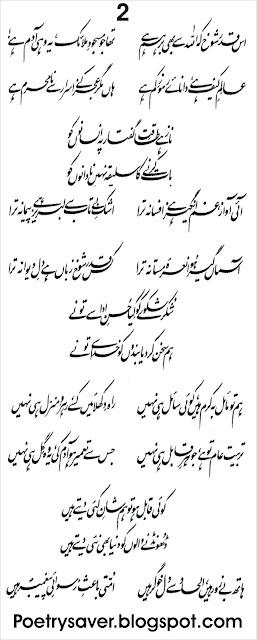 2
اس قدر شوخ کہ اللہ سے بھی برہم ہے تھا جو مسجود ملائک یہ وہی آدم ہے
عالم کیف ہے دانائے رموز کم ہے ہاں مگر عجز کے اسرار سے نامحرم ہے
ناز ہے طاقت گفتار پہ انسانوں کو
بات کرنے کا سلیقہ نہیں نادانوں کو
آئی آواز غم انگیز ہے افسانہ ترا اشک بے تاب سے لبریز ہے پیمانہ ترا
آسماں گیر ہوا نعرۂ مستانہ ترا کس قدر شوخ زباں ہے دل دیوانہ ترا
شکر شکوے کو کیا حسن ادا سے تو نے
ہم سخن کر دیا بندوں کو خدا سے تو نے
ہم تو مائل بہ کرم ہیں کوئی سائل ہی نہیں راہ دکھلائیں کسے رہرو منزل ہی نہیں
تربیت عام تو ہے جوہر قابل ہی نہیں جس سے تعمیر ہو آدم کی یہ وہ گل ہی نہیں
کوئی قابل ہو تو ہم شان کئی دیتے ہیں
ڈھونڈنے والوں کو دنیا بھی نئی دیتے ہیں
ہاتھ بے زور ہیں الحاد سے دل خوگر ہیں امتی باعث رسوائی پیغمبر ہیں
Poetrysaver.blogspot.com